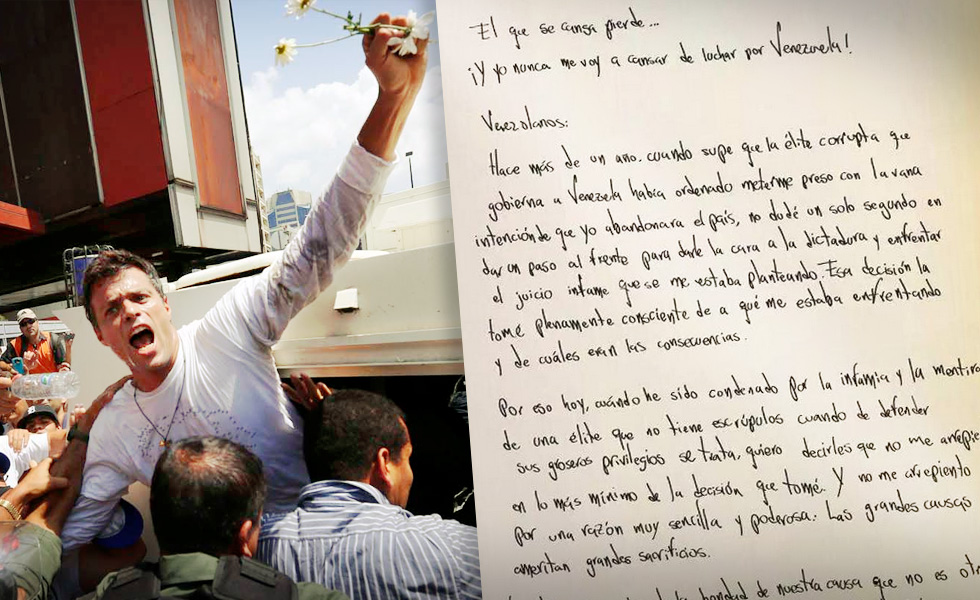 El que se cansa pierde...
¡Y yo nunca me voy a cansar de luchar por Venezuela!
Venezolanos:
Hace más de un año, cuando supe que la élite corrupta que
gobierna a Venezuela había ordenado meterme preso con la vana
intención de que yo abandonara el país, no dudé un solo segundo en
dar un paso al frente para darle la cara a la dictadura y enfrentar
el juicio infame que se me estaba planteando. Esa decisión la
tomé plenamente consciente de a qué me estaba enfrentando
y de cuáles eran las consecuencias.
Por eso hoy, cuándo he sido condenado por la infamia y la mentira
de una élite que no tiene escrúpulos cuando de defender
sus groseros privilegios se trata, quiero decirles que no me arrepie
en lo más mínimo de la decisión que tomé. Y no me arrepiento
por una razón muy sencilla y poderosa: Las grandes causas
ameritan grandes sacrificios.
la bondad de nuestra causa que no es otr